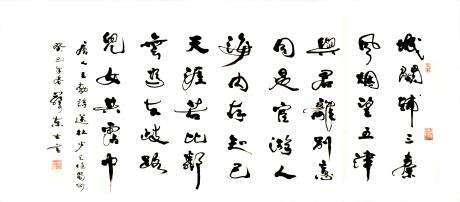 城闕輔三秦
風烟望五津
與君離別意
同是宦游人
海内存知己
天涯若比鄰
無爲在歧路
兒女共霑巾
唐人王勃詩送杜少府之任蜀州
癸巳年